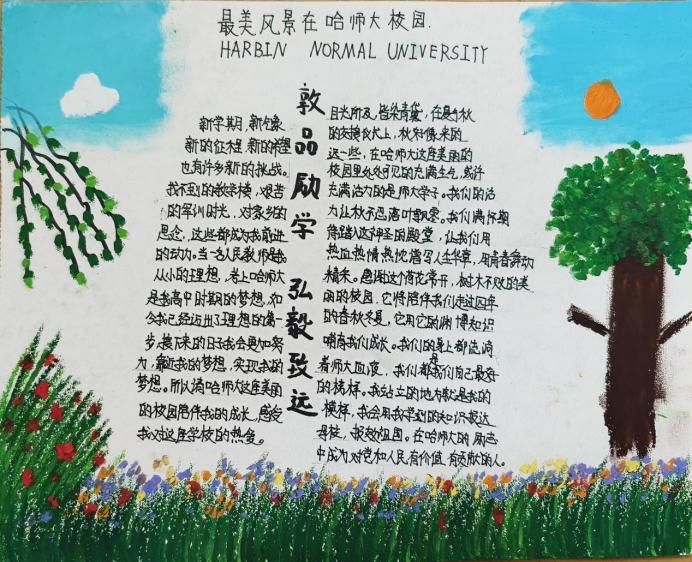 最美风景在哈师大校园.
HARBIN NORMAL UNIVERSITY
敦品励学 弘毅致远
新学期,新气象
新的征程,新的希望
也有许多新的挑战。
找不到的教学楼,艰苦
的军训时光,对家乡的
思念,这些都成为我前进
的动力。当一名人民教师是我
从小的理想,考上哈师大
是我高中时期的梦想,如
今我已经迈出了理想的第一
步,接下来的日子我会更加努
力,靠近我的梦想,实现我的
梦想。所以请哈师大这座美丽
的校园陪伴我的成长,感受
我对这座学校的热爱。
目光所及,皆终青黛,在夏与秋
的交接仪式上,秋和像来的
迟一些,在哈师大这座美丽的
校园里处处可见的充满生气,或许
充满活力的是师大学子。我们的活
力让秋不忍落叶飘零。我们满怀期
待踏入这神圣的殿堂,让我们用
热血热情热忱谱写人生华章,用青春舞动
精采。感谢这个落花常开,树木不败的美
丽的校园,它将陪伴我们走过四年
的春秋冬夏,它用它的渊博知识
哺育我们成长。我们的身上都流淌
着师大血液,我们都是我们自己最好
的榜样。我站立的地方就是我的
模样,我会用我学到的知识
母校,报效祖国。在哈师大的
中成为对党和人民有价值有贡献的人。